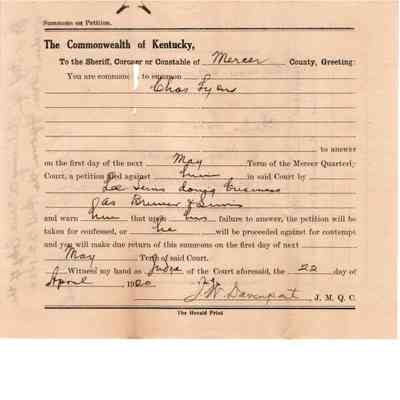 Summons on Petition.
The Commonwealth of Kentucky,
To the Sheriff, Coroner or Constable of Mercer County, Greeting:
You are commanded to summon
Chas
to answer
on the first day of the next May Term of the Mercer Quarterly
Court, a petition filed against him in said Court by
Lee Lewis doing business
as Bremer & Lewis
and warn him that upon his failure to answer, the petition will be
taken for confessed, or he will be proceeded against for contempt
and you will make due return of this summons on the first day of next
May Term of said Court.
Witness my hand as Judge of the Court aforesaid, the 22 day of
April 1920
J.W. Davenport, J. M. Q. C.
The Herald Print